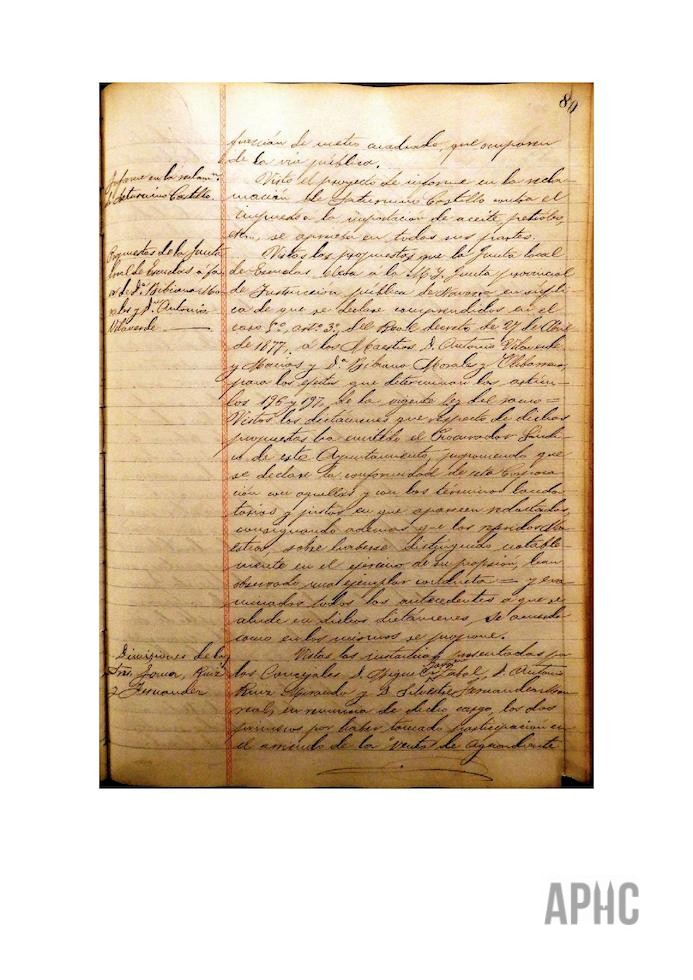 80
fracción de metro cuadrado, que ocuparen
de la via publica.
Informe en la reclamon.
de Saturnino Castillo.
Visto el proyecto de informe en la recla-
macion de Saturnino Castillo contra el
impuesto a la importacion de aceite, petroleo,
etc., se aprueba en todas sus partes.
Propuestas de la Junta
local de Escuelas á fa-
vor de Da. Bibiana Mo-
rales y D. Antonio
Vilaverde.
Vistas las propuestas que la Junta local
de Escuelas eleva á la M. I. Junta provincial
de Instrucción publica de Navarra en súpli-
ca de que se declare comprendidos en el
caso 5º, artº 3º, del Real decreto de 27 de Abril
de 1877, á los Maestros D. Antonio Vilaverde
y Macias y Da. Bibiana Morales y
para los efectos que determinan los artícu-
los 196 y 197, de la vigente ley del ramo =
Vistos los dictámenes que respecto de dichas
propuestas ha emitido el Procurador Sindi-
co de este Ayuntamiento, proponiendo que
se declare la conformidad de esta Corpora-
ción con aquellas y con los términos lauda-
torios y justos en que aparecen redactados,
consignando ademas que los referidos Ma-
estros, sobre haberse distinguido notable-
mente en el ejercicio de su profesion, han
observado una ejemplar conducta = y exa-
minados todos los antecedentes a que se
alude en dichos dictámenes, se acuerda
como en los mismos se propone.
Dimisiones de los
Sres. Ruiz
y Fernandez
Vistas las instancias presentadas por
los Concejales D. Miguel Zabal, D. Antonio
Ruiz Miranda y D. Silvestre Fernandez Mon-
real, en renuncia de dicho cargo, los dos
primeros por haber tomado participacion en
el arriendo de la "Venta" de Aguardiente
APHC